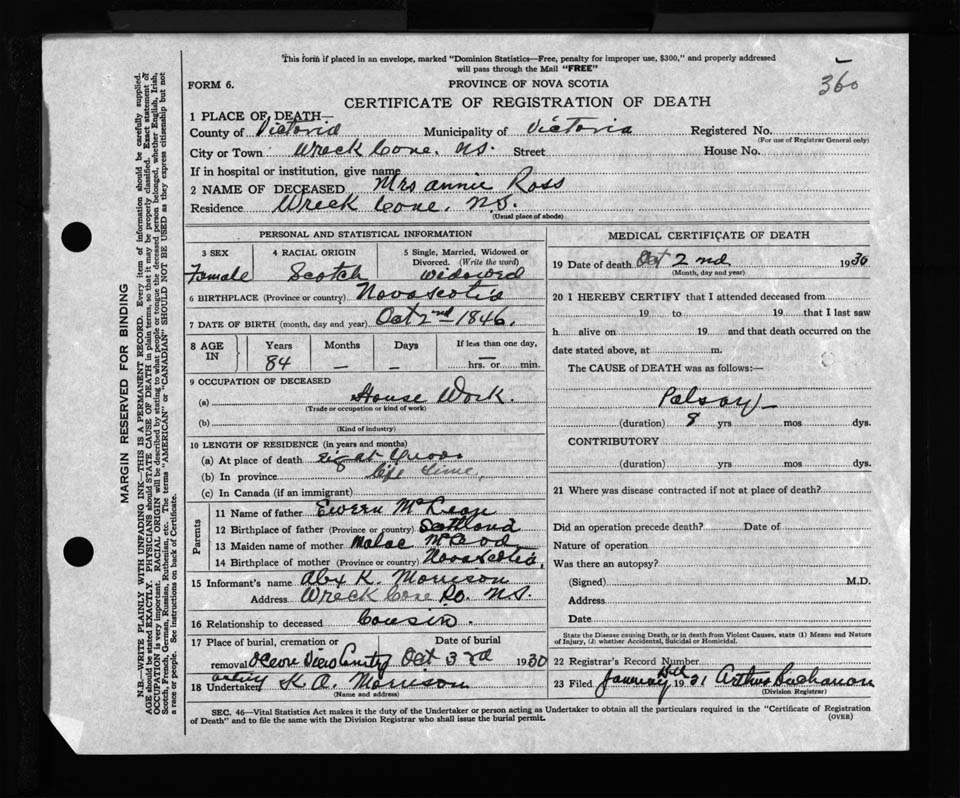 This form if placed in an envelope, marked "Dominion Statistics—Free, penalty for improper use, $300," and properly addressed
will pass through the Mail "FREE"
360
FORM 6.
PROVINCE OF NOVA SCOTIA
CERTIFICATE OF REGISTRATION OF DEATH
1 PLACE OF DEATH—
County of Victoria Municipality of Victoria Registered No.
(For use of Registrar General only)
City or Town Wreck Cove. N.S. Street House No.
If in hospital or institution, give name
2 NAME OF DECEASED Mrs Annie Ross
Residence Wreck Cove. N.S.
(Usual place of abode)
PERSONAL AND STATISTICAL INFORMATION
3 SEX 4 RACIAL ORIGIN 5 Single, Married, Widowed or
Divorced. (Write the word)
Female Scotch Widowed
6 BIRTHPLACE (Province or country) Nova Scotia
7 DATE OF BIRTH (month, day and year) Oct 2nd 1846.
8 AGE IN Years Months Days If less than one day,
84 — — — hrs. or min.
9 OCCUPATION OF DECEASED
(a) House Work.
(Trade or occupation or kind of work)
(b)
(Kind of industry)
10 LENGTH OF RESIDENCE (in years and months)
(a) At place of death
(b) In province life time,
(c) In Canada (if an immigrant)
Parents
11 Name of father
12 Birthplace of father (Province or country) Scotland
13 Maiden name of mother
14 Birthplace of mother (Province or country) Nova Scotia.
15 Informant's name Alex K. Morrison
Address Wreck Cove N.S.
16 Relationship to deceased Cousin.
17 Place of burial, cremation or Date of burial
removal Ocean View Oct 3rd 1930
18 Undertaker K. A. Morrison
(Name and address)
MEDICAL CERTIFICATE OF DEATH
19 Date of death Oct 2nd 1930
(Month, day and year)
20 I HEREBY CERTIFY that I attended deceased from
19 to 19 that I last saw
h alive on 19 and that death occurred on the
date stated above, at m.
The CAUSE of DEATH was as follows:—
(duration) 8 yrs mos dys.
CONTRIBUTORY
(duration) yrs. mos. dys.
21 Where was disease contracted if not at place of death?
Did an operation precede death? Date of
Nature of operation
Was there an autopsy?
(Signed) M.D.
Address
Date
State the Disease causing Death, or in death from Violent Causes, state (1) Means and Nature
of Injury, (2) whether Accidental, Suicidal or Homicidal.
22 Registrar's Record Number
23 Filed, January 1931 Arthur Buchanan
(Division Registrar)
SEC. 46—Vital Statistics Act makes it the duty of the Undertaker or person acting as Undertaker to obtain all the particulars required in the "Certificate of Registration
of Death" and to file the same with the Division Registrar who shall issue the burial permit.
(OVER)
MARGIN RESERVED FOR BINDING
N.B.—WRITE PLAINLY WITH UNFADING INK—THIS IS A PERMANENT RECORD. Every item of information should be carefully supplied.
AGE should be stated EXACTLY. PHYSICIANS should STATE CAUSE OF DEATH in plain terms, so that it may be properly classified. Exact statement of
OCCUPATION is very important. RACIAL ORIGIN will be described by stating to what people or tongue the deceased person belonged, whether English, Irish,
Scotch, French, German, Russian, Ruthenian, etc. The terms "AMERICAN" or "CANADIAN" SHOULD NOT BE USED as they express citizenship but not
a race or people. See instructions on back of Certificate.